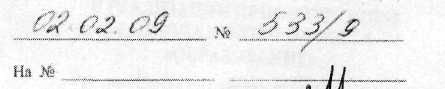 02.02.09 № 533/9
На №